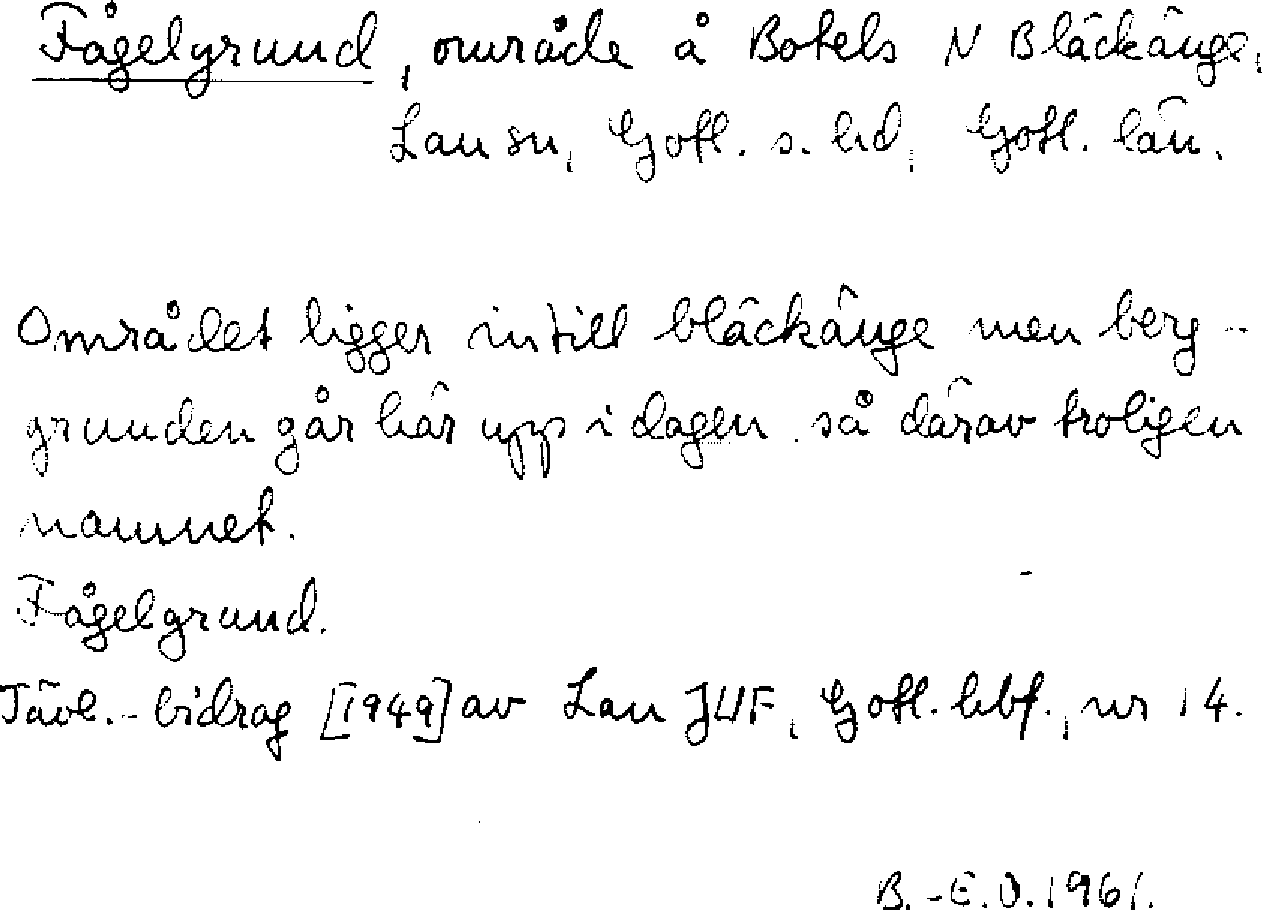 Fågelgrund, område å Botels N Bläckänge,
Lau sn, Gotl. s. hd, Gotl. län.
Området ligger intill bläckänge men berg-
grunden går här upp i dagen så därav troligen
namnet.
Fågelgrund.
Tävl.-bidrag [1949] av Lau JUF, Gotl. hbf., nr 14.
B.-E.O. 1961.